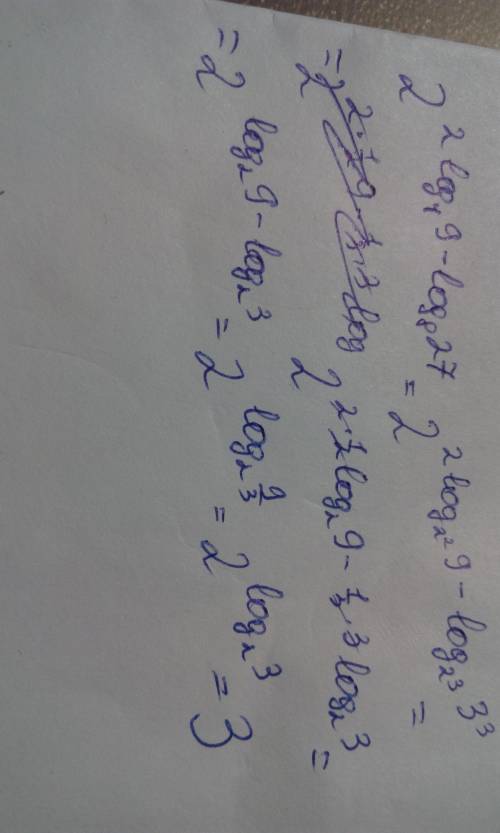 2^{2log₄9-log₈27} = 2^{2log_{2²}9-log_{2³}3³} =
= 2^{2·½log₂9-⅓·3log₂3} =
= 2^{log₂9-log₂3} = 2^{log₂ 9/3} = 2^{log₂3} = 3